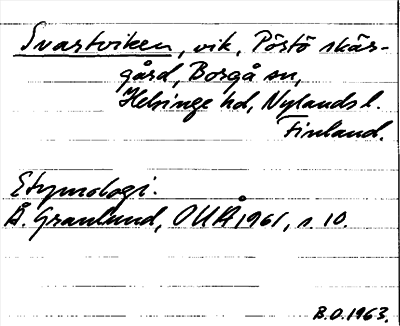 Svartviken, vik, Pörtö skär-
gård, Borgå sn,
Helsinge hd, Nylands l.
Finland.
Etymologi.
Å. Granlund, OUÅ 1961, s. 10.
B.O. 1963.